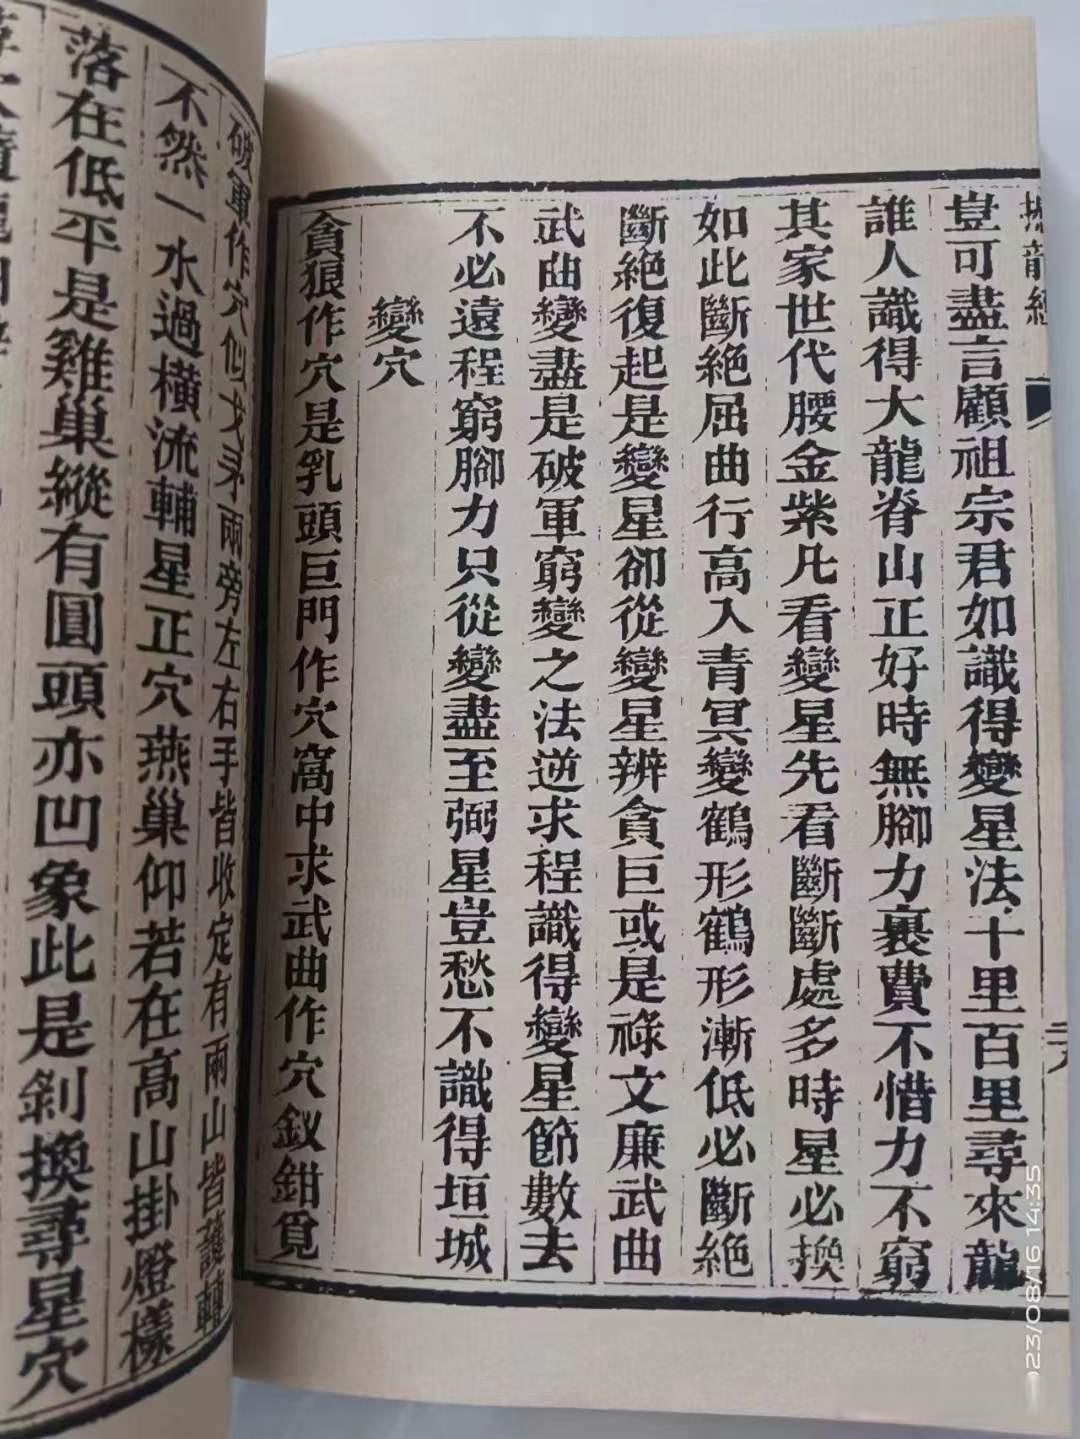 撼龍經
豈可盡言顧祖宗君如識得變星法千里百里尋來龍
誰人識得大龍脊山正好時無腳力裹費不惜力不窮
其家世代腰金紫凡看變星先看斷斷處多時星必換
如此斷絕屈曲行高入青冥變鶴形鶴形漸低必斷絕
斷絕復起是變星卻從變星辨貪巨或是祿文廉武曲
武曲變盡是破軍窮變之法逆求程識得變星節數去
不必遠程窮腳力只從變盡至弼星豈愁不識得垣城
變穴
貪狼作穴是乳頭巨門作穴窩中求武曲作穴釵鉗覓
破軍作穴似戈矛兩旁左右手皆收定有兩山皆護轉
不然一水過橫流輔星正穴燕巢仰若在高山掛燈樣
落在低平是雞巢縱有圓頭亦凹象此是剝換尋星穴
23/08/16 14:35